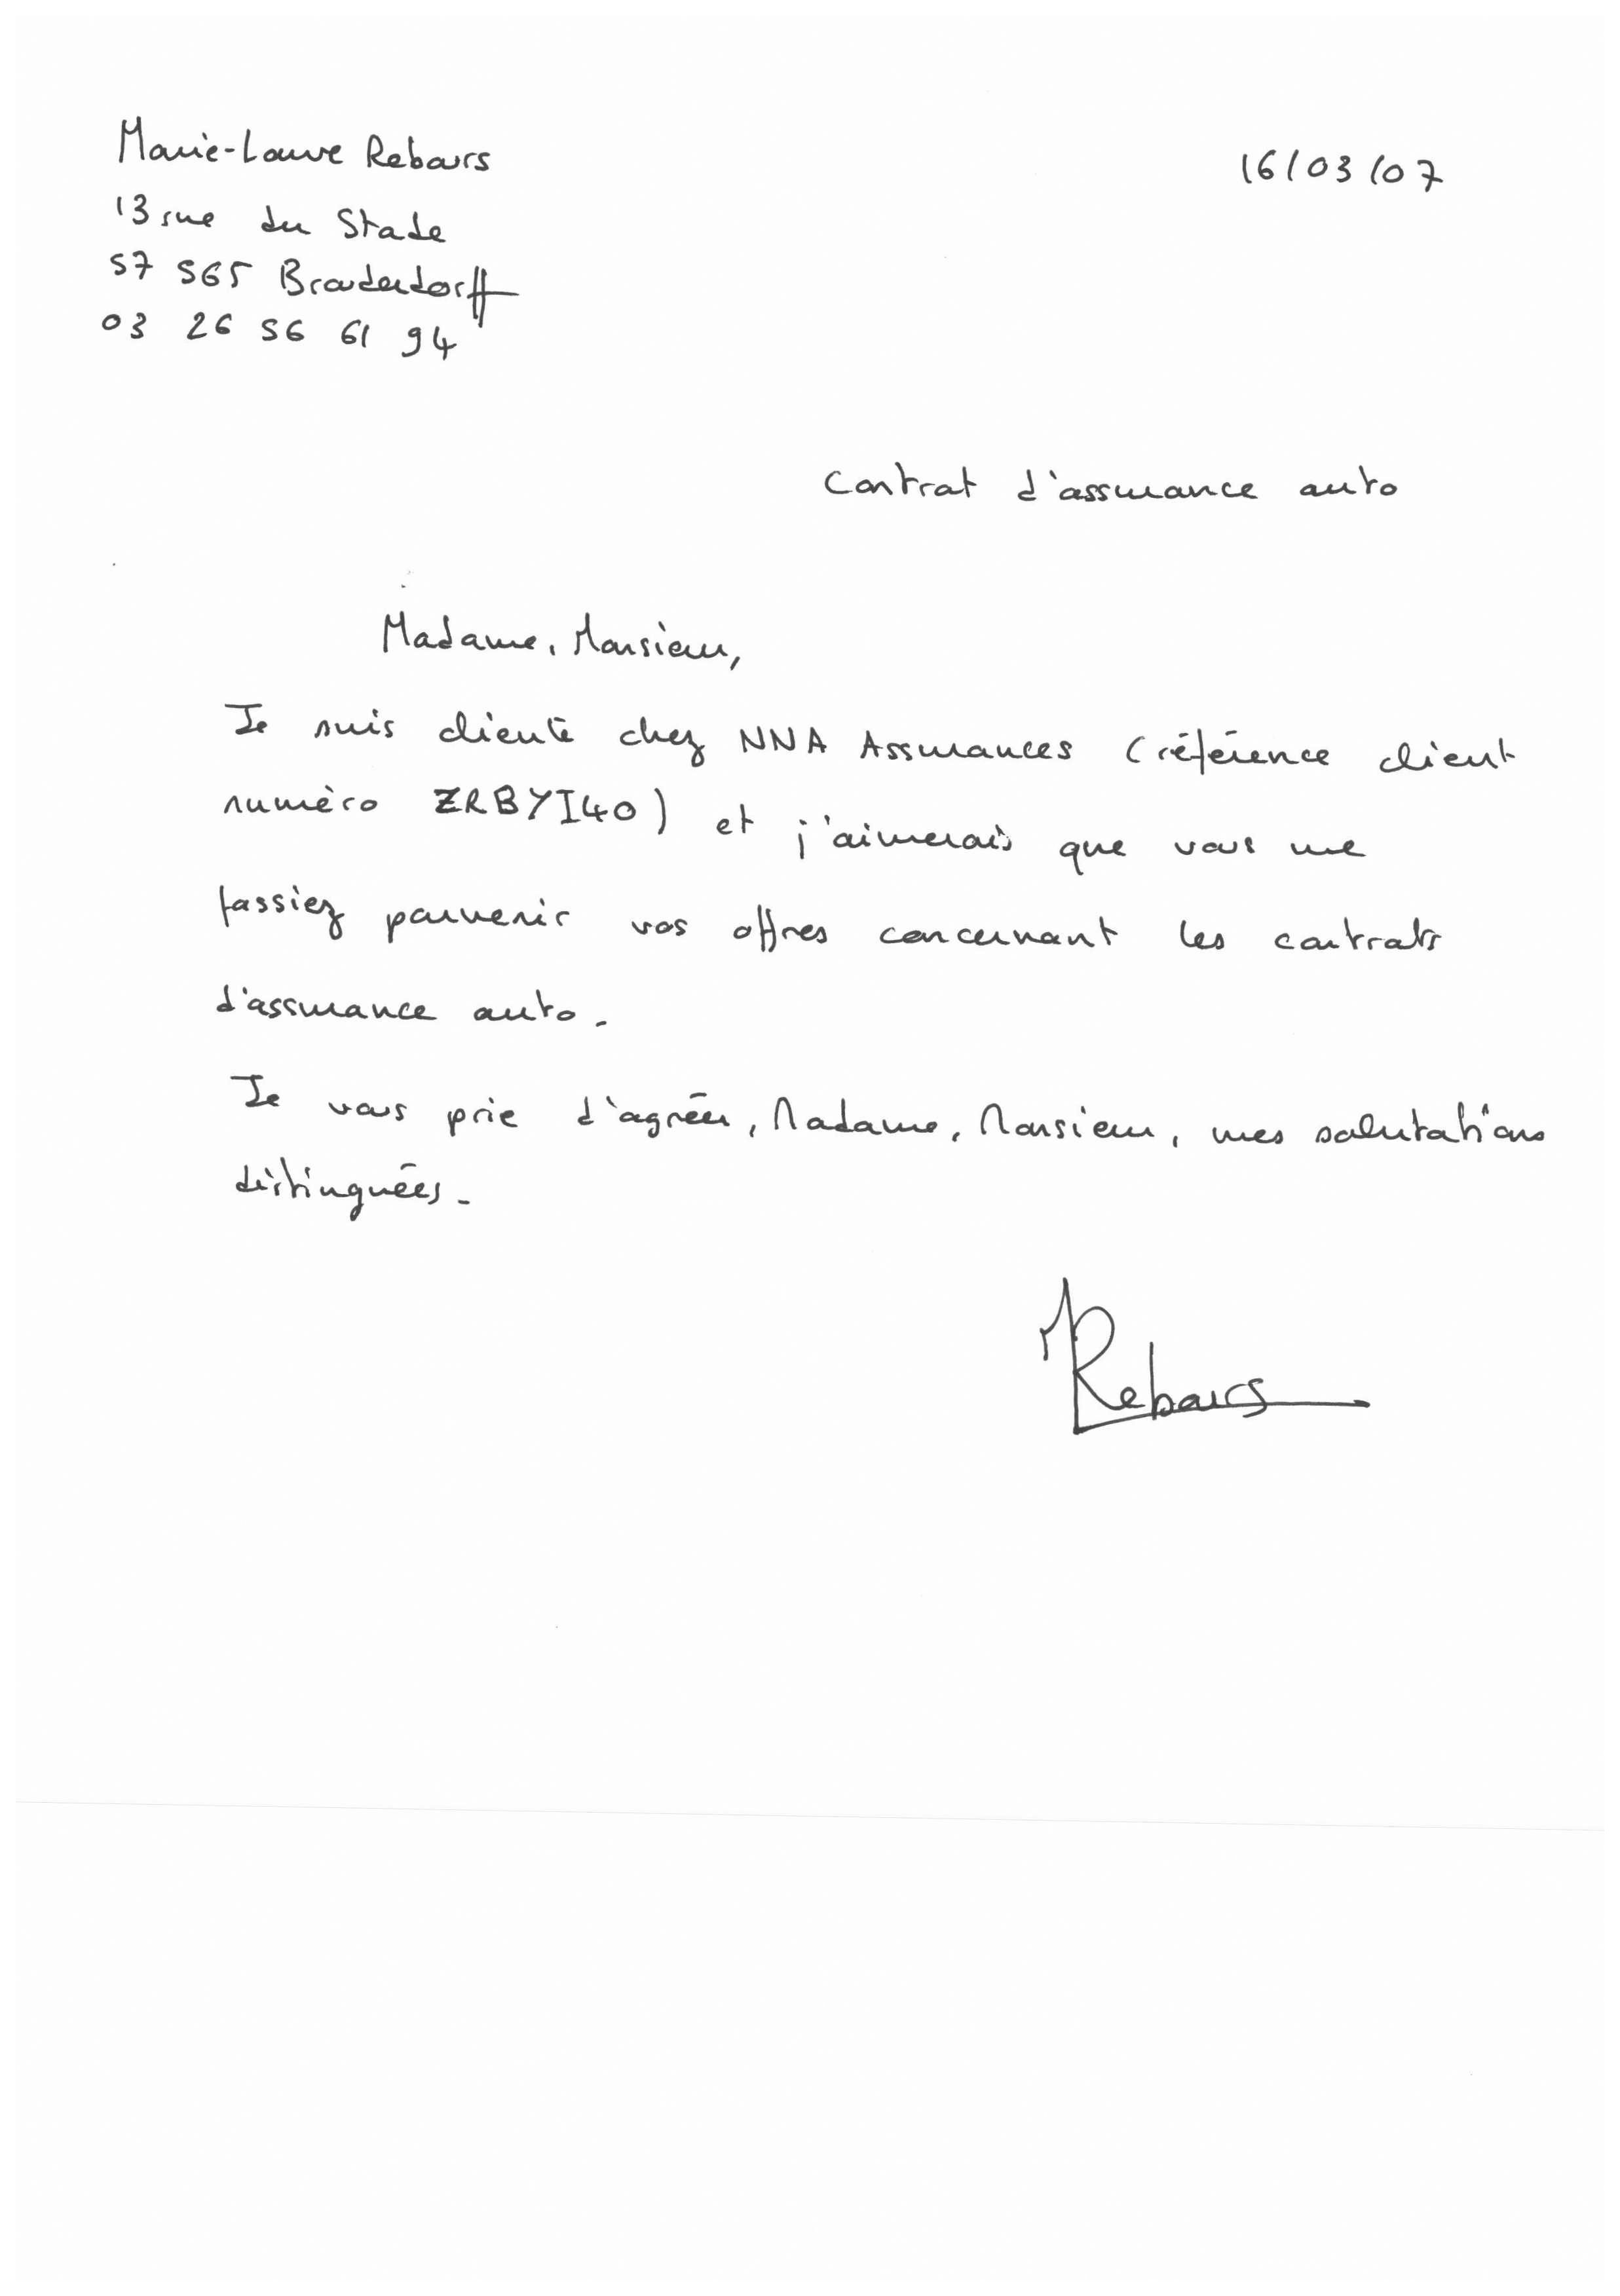 Marie-Laure Rebours
16/03/07
13 rue du Stade
57 565 Brouderdorff
03 26 56 61 94
Contrat d'assurance auto
Madame, Monsieur,
Je suis cliente chez NNA Assurances (référence client
numéro ZRBYI40) et j'aimerais que vous me
fassiez parvenir vos offres concernant les contrats
d'assurance auto.
Je vous prie d'agréer, Madame, Monsieur, mes salutations
distinguées.
Rebours